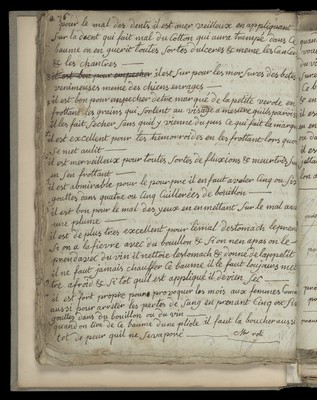 pour le mal des dents il est mer veilleux en appliquant
sur la dent qui fait mal du cotton qui aura trempé dans ce
baume on en guerit toutes sortes dulceres & meme les cancers
& les chancres
il est bon pour empecher il est sur pour les morsures des betes
venimeuses meme des chiens enragés
il est bon pour empecher detre marqué de la petite verole en
frottant les grains qui sortent au visage a mesure quils paroissent
il les fait secher sans quil y vienne du pus ce qui fait la marque
il est excellent pour les hemorroides en les frottant lors quon
se met au lit
il est merveilleux pour toutes sortes de fluxions & meurtrissures
en s'en frottant
il est admirable pour le pourpre il en faut avaler cinq ou six
gouttes dans quatre ou cinq cuillerées de bouillon
il est bon pour le mal des yeux en en mettant sur le mal avec
une plume
il est de plus tres excellent pour le mal destomach le prenant
si on a la fievre avec du bouillon & si on nen a pas on le
prend avec du vin il nettoie lestomach & donne de lappetit
il ne faut jamais chauffer ce baume il le faut toujours met
tre froid & si tot quil est appliqué il devien sec
il est fort propre pour provoquer les mois aux femmes comme
aussi pour arreter les pertes de sang en prenant cinq ou six
gouttes dans du bouillon ou du vin
quand on tire de ce baume dune fiole il faut la boucher aussi
tot de peur quil ne sevapore